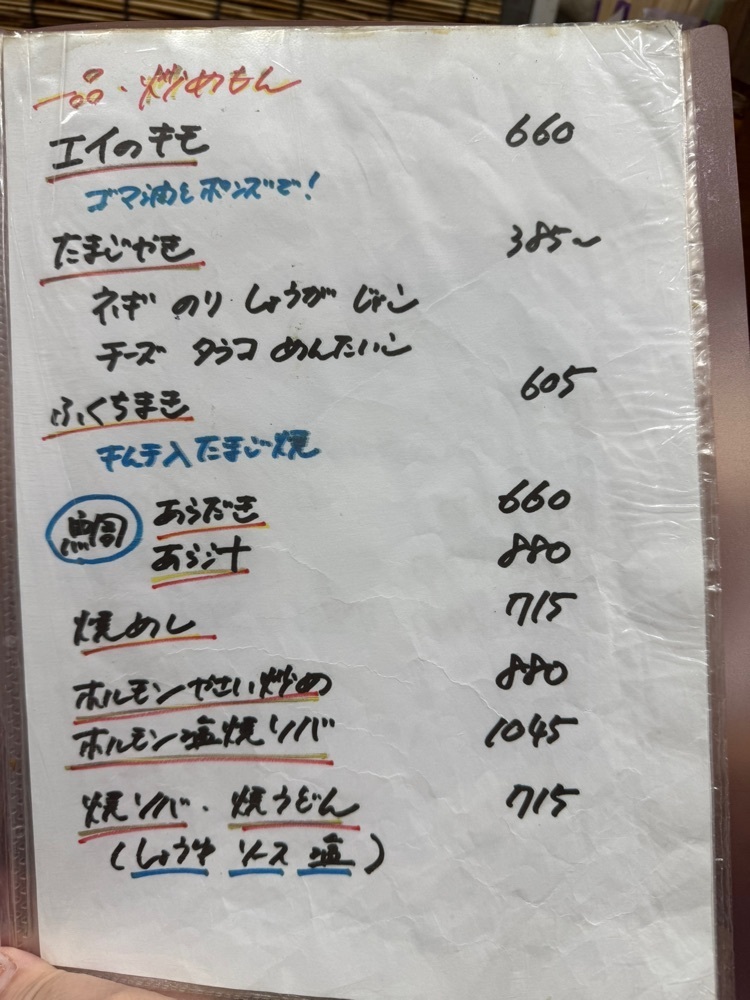 一品・炒めもん
エイのキモ 660
ゴマ油とポンズで!
たまじやき 385~
ネギ のり しょうが じゃこ
チーズ タラコ めんたいこ
ふくちまき 605
キムチ入たまご焼
鯛 あらだき 660
あら汁 880
焼めし 715
ホルモンやさい炒め 880
ホルモン塩焼ソバ 1045
焼ソバ・焼うどん 715
(しょうゆ ソース 塩)